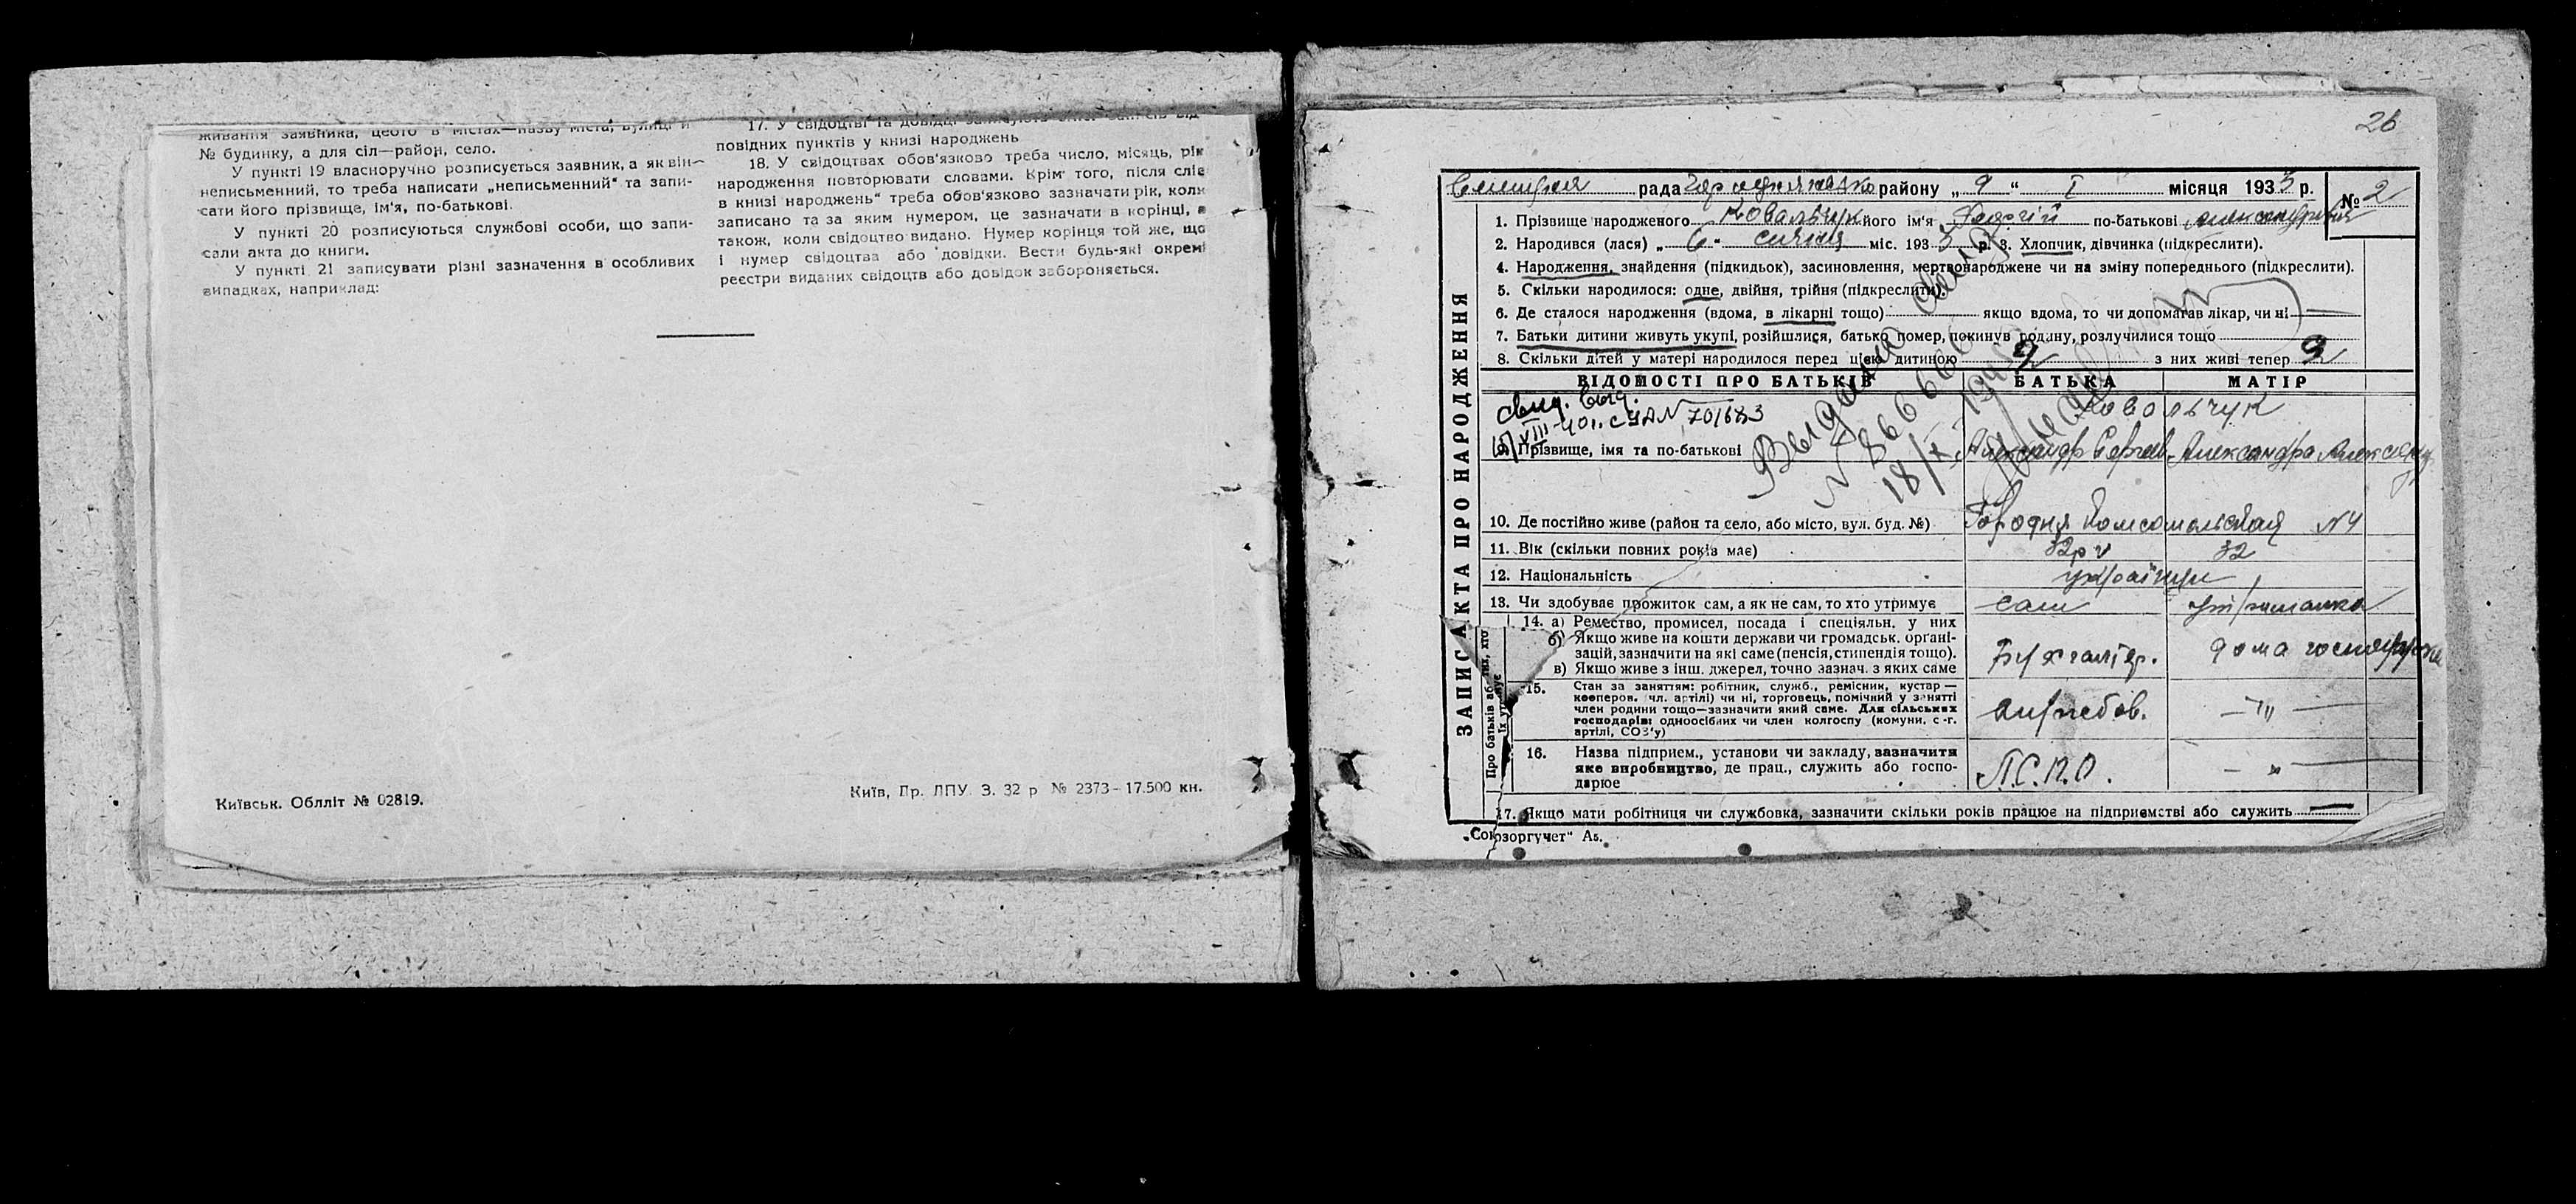 живання заявника, цебто в містах—назву міста, вулиці й
№ будинку, а для сіл—район, село.
У пункті 19 власноручно розписується заявник, а як він—
неписьменний, то треба написати „неписьменний" та запи-
сати його прізвище, ім'я, по-батькові.
У пункті 20 розписуються службові особи, що запи-
сали акта до книги.
У пункті 21 записувати різні зазначення в особливих
випадках, наприклад:
17. У свідоцтві та довідці записують зміст записів від-
повідних пунктів у книзі народжень
18. У свідоцтвах обов'язково треба число, місяць, рік
народження повторювати словами. Крім того, після слів
в книзі народжень" треба обов'язково зазначати рік, коли
записано та за яким нумером, це зазначати в корінці, а
також, коли свідоцтво видано. Нумер корінця той же, що
і нумер свідоцтва або довідки. Вести будь-які окремі
реєстри виданих свідоцтв або довідок забороняється.
Київськ. Облліт № 02819.
Київ, Др. ЛПУ. З. 32 р № 2373-17.500 кн.
26
рада району „ 9 " I місяця 1933 р.
№ 2
1. Прізвище народженого Ковальчук його ім'я по-батькові
2. Народився (лася) „ 6 " січня міс. 1933 р. 3. Хлопчик, дівчинка (підкреслити).
4. Народження, знайдення (підкидьок), засиновлення, мертвонароджене чи на зміну попереднього (підкреслити).
5. Скільки народилося: одне, двійня, трійня (підкреслити).
6. Де сталося народження (вдома, в лікарні тощо) якщо вдома, то чи допомагав лікар, чи ні —
7. Батьки дитини живуть укупі, розійшлися, батько помер, покинув родину, розлучилися тощо
8. Скільки дітей у матері народилося перед цією дитиною 2 з них живі тепер 2
ЗАПИС АКТА ПРО НАРОДЖЕННЯ
ВІДОМОСТІ ПРО БАТЬКІВ БАТЬКА МАТІР
VIII-40 г. № 701683
Ковальчук
9. Прізвище, імя та по-батькові Александр Сергеев. Александра
Выдано
N 866660
18/X
10. Де постійно живе (район та село, або місто, вул. буд. №) Городня Комсомольская N4
11. Вік (скільки повних років має) 32 32
12. Національність українци
13. Чи здобуває прожиток сам, а як не сам, то хто утримує сам утриманка
14. а) Ремество, промисел, посада і спеціяльн. у них
б) Якщо живе на кошти держави чи громадськ. органі-
зацій, зазначити на які саме (пенсія, стипендія тощо).
в) Якщо живе з інш. джерел, точно зазнач. з яких саме
Бухгалтер. дома
15. Стан за заняттям: робітник, служб., ремісник, кустар—
кооперов. чл. артілі) чи ні, торговець, помічний у занятті
член родини тощо—зазначити який саме. Для сільських
господарів: одноосібних чи член колгоспу (комуни, с.-г.
артілі, СОЗ'у)
службов. — " —
16. Назва підприєм., установи чи закладу, зазначити
яке виробництво, де прац., служить або госпо-
дарює
— " —
17. Якщо мати робітниця чи службовка, зазначити скільки років працює на підприємстві або служить —
„Союзоргучет" А5.